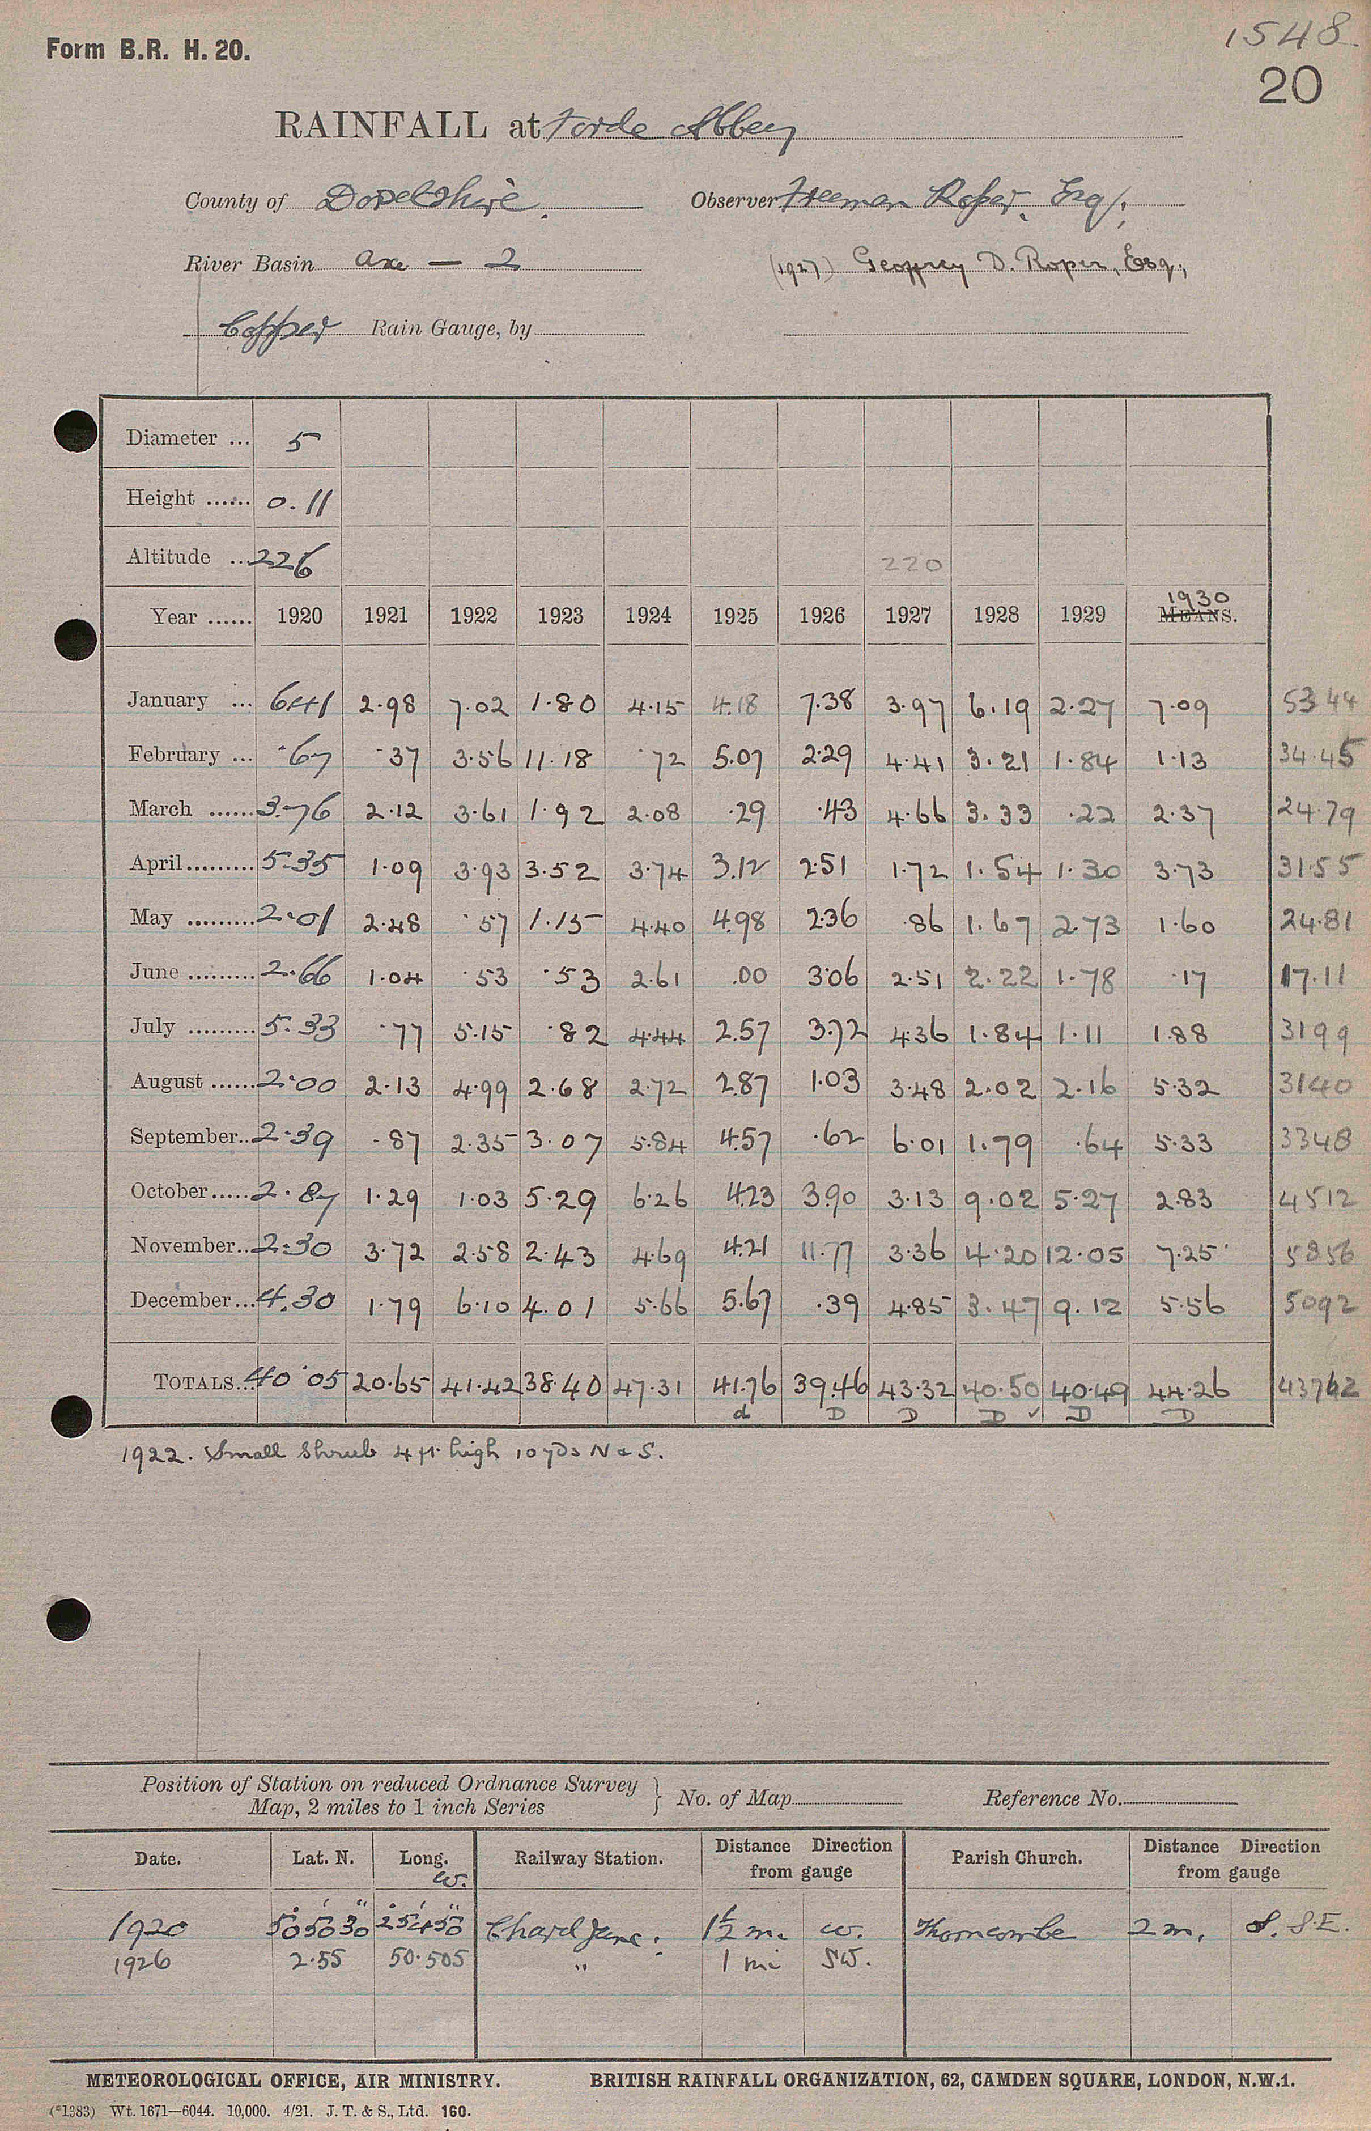 Form B.R. H. 20.
1548.
20
RAINFALL at Forde Abbey
County of Dorsetshire. Observer Freeman Roper, Esq.,
River Basin Axe — 2 (1927) Geoffrey D. Roper, Esq.,
Copper Rain Gauge, by
Diameter ... 5
Height ...... 0.11
Altitude ... 226 220
Year ...... 1920 1921 1922 1923 1924 1925 1926 1927 1928 1929 1930 MEANS.
January ... 6.41 2.98 7.02 1.80 4.15 4.18 7.38 3.97 6.19 2.27 7.09 53 44
February ... .67 .37 3.56 11.18 .72 5.07 2.29 4.41 3.21 1.84 1.13 34.45
March ...... 3.76 2.12 3.61 1.92 2.08 .29 .43 4.66 3.33 .22 2.37 24.79
April ......... 5.35 1.09 3.93 3.52 3.74 3.12 2.51 1.72 1.54 1.30 3.73 31.55
May ......... 2.01 2.48 .57 1.15 4.40 4.98 2.36 .86 1.67 2.73 1.60 24.81
June ......... 2.66 1.04 .53 .53 2.61 .00 3.06 2.51 2.22 1.78 .17 17.11
July ......... 5.33 .77 5.15 .82 4.44 2.57 3.72 4.36 1.84 1.11 1.88 3199
August ...... 2.00 2.13 4.99 2.68 2.72 2.87 1.03 3.48 2.02 2.16 5.32 3140
September.. 2.39 .87 2.35 3.07 5.84 4.57 .62 6.01 1.79 .64 5.33 3348
October ..... 2.87 1.29 1.03 5.29 6.26 4.23 3.90 3.13 9.02 5.27 2.83 4512
November.. 2.30 3.72 2.58 2.43 4.69 4.21 11.77 3.36 4.20 12.05 7.25 5856
December ... 4.30 1.79 6.10 4.01 5.66 5.67 .39 4.85 3.47 9.12 5.56 5092
TOTALS... 40.05 20.65 41.42 38.40 47.31 41.76 39.46 43.32 40.50 40.49 44.26 43762
d D D D ✓ D D
1922. Small Shrub 4 ft. high 10 yds N & S.
Position of Station on reduced Ordnance Survey Map, 2 miles to 1 inch Series } No. of Map Reference No.
Date. Lat. N. Long. W. Railway Station. Distance Direction from gauge Parish Church. Distance Direction from gauge
1920 50° 50' 30" 2° 54' 50" Chard Junc. 1½ m. W. Thorncombe 2 m. S. S.E.
1926 2.55 50.505 " 1 mi SW.
METEOROLOGICAL OFFICE, AIR MINISTRY. BRITISH RAINFALL ORGANIZATION, 62, CAMDEN SQUARE, LONDON, N.W.1.
(*1383) Wt. 1671—6044. 10,000. 4/21. J. T. & S., Ltd. 160.